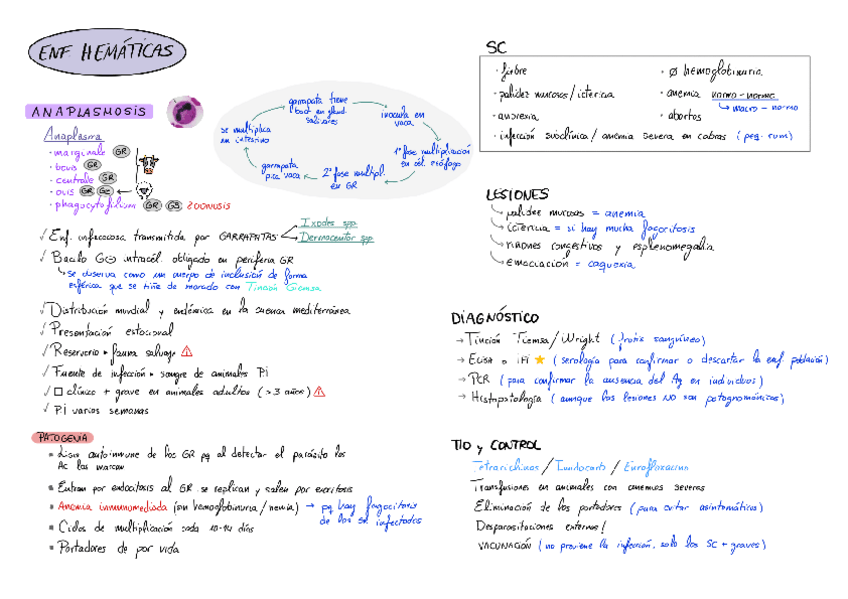 ENF HEMÁTICAS
ANAPLASMOSIS
Anaplasma
· marginale GR
· bovis GR
· centrale GR
· ovis GR
· phagocytofilum GR GB ZOONOSIS
garrapata tiene
bact en gland
salivares
inocula en
vaca
1ª fase multiplicación
en cél. esófago
2ª fase multipl.
en GR
garrapata
pica vaca
se multiplica
en intestino
√ Enf. infecciosa transmitida por GARRAPATAS
Ixodes spp
Dermacentor spp
√ Bacilo G⊖ intracel. obligado en periferia GR
se observa como un cuerpo de inclusión de forma
esférica que se tiñe de morado con Tinción Giemsa
√ Distribución mundial y endémica en la cuenca mediterránea
√ Presentación estacional
√ Reservorio fauna salvaje
√ Fuente de infección sangre de animales PI
√ □ clínico + grave en animales adultos (>3 años)
√ PI varias semanas
PATOGENIA
Lisis autoinmune de los GR pq al detectar el parásito los
Ac las marcan
Entran por endocitosis al GR se replican y salen por exocitosis
Anemia inmunomediada (sin hemoglobinuria/nemia) → pq hay fagocitosis
de los GR infectados
Ciclos de multiplicación cada 10-14 días
Portadores de por vida
SC
· fiebre
· palidez mucosas/ictericia
· anorexia
· infección subclínica/ anemia severa en cabras (peq. rum)
· Ø hemoglobinuria
· anemia normo-normo
macro-normo
· abortos
LESIONES
palidez mucosas = anemia
ictericia = si hay mucha fagocitosis
riñones congestivos y esplenomegalia
emaciación = caquexia
DIAGNÓSTICO
→ Tinción Tiemsa/Wright (frotis sanguíneo)
→ Elisa o IFI (serología para confirmar o descartar la enf población)
→ PCR (para confirmar la ausencia del Ag en individuos)
→ Histopatología (aunque las lesiones NO son patognomónicas)
TTO y CONTROL
Tetraciclinas / Imidocarb / Enrofloxacino
Transfusiones en animales con anemias severas
Eliminación de los portadores (para evitar asintomáticos)
Desparasitaciones externas!
VACUNACIÓN (no previene la infección, solo los SC + graves)